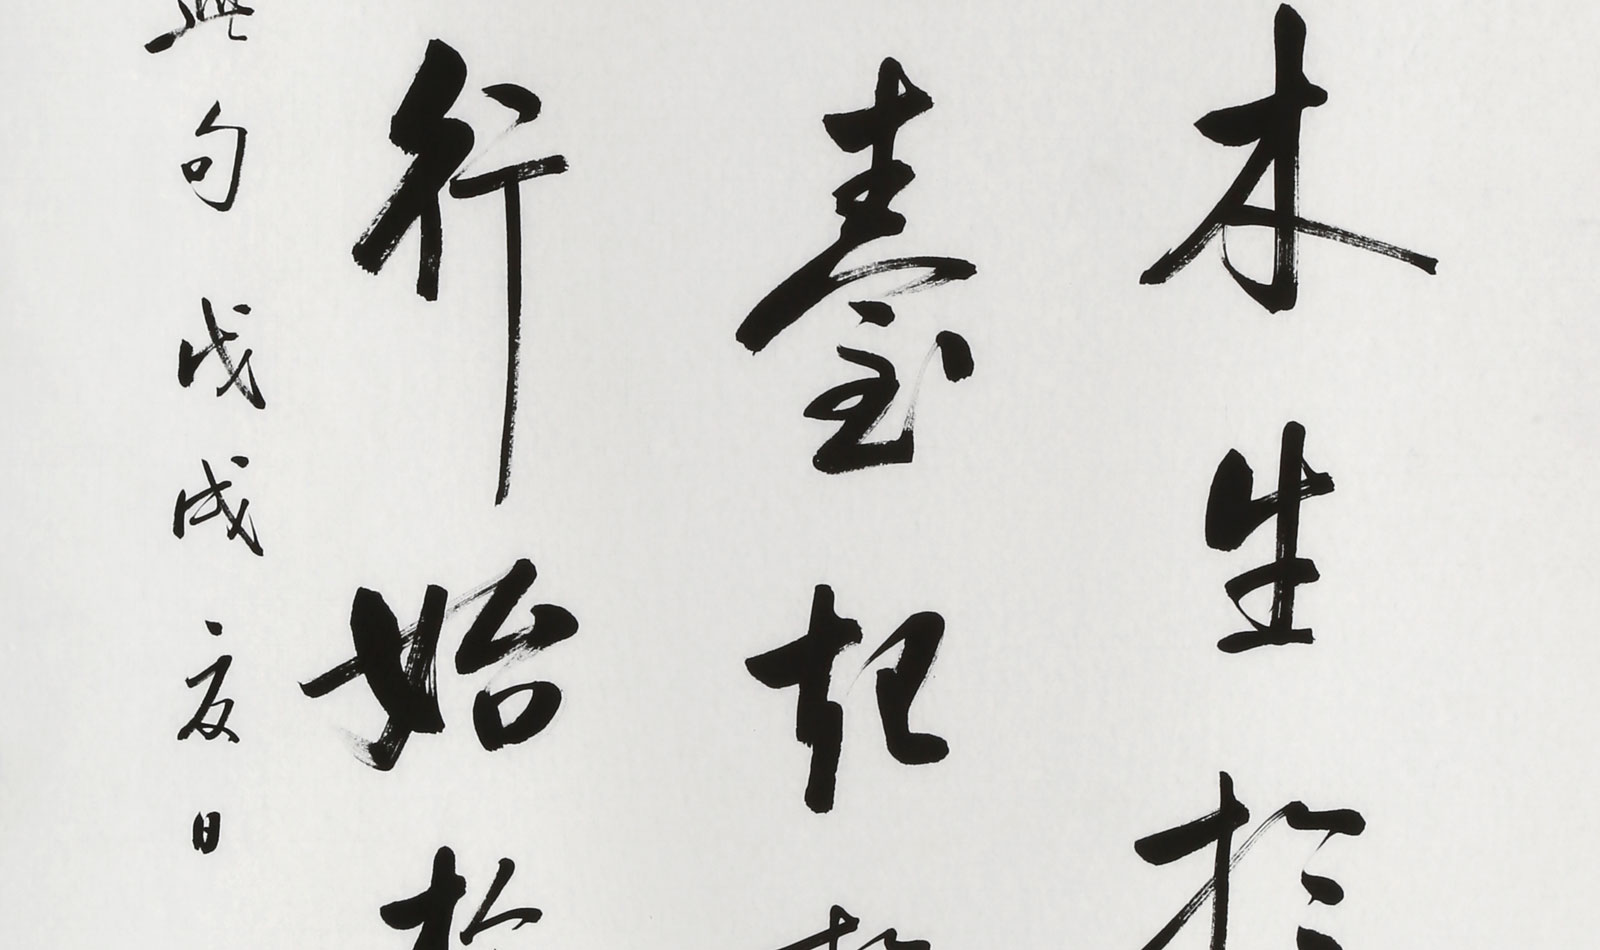 木生於
臺起於
行始於
典句戊戌夏日